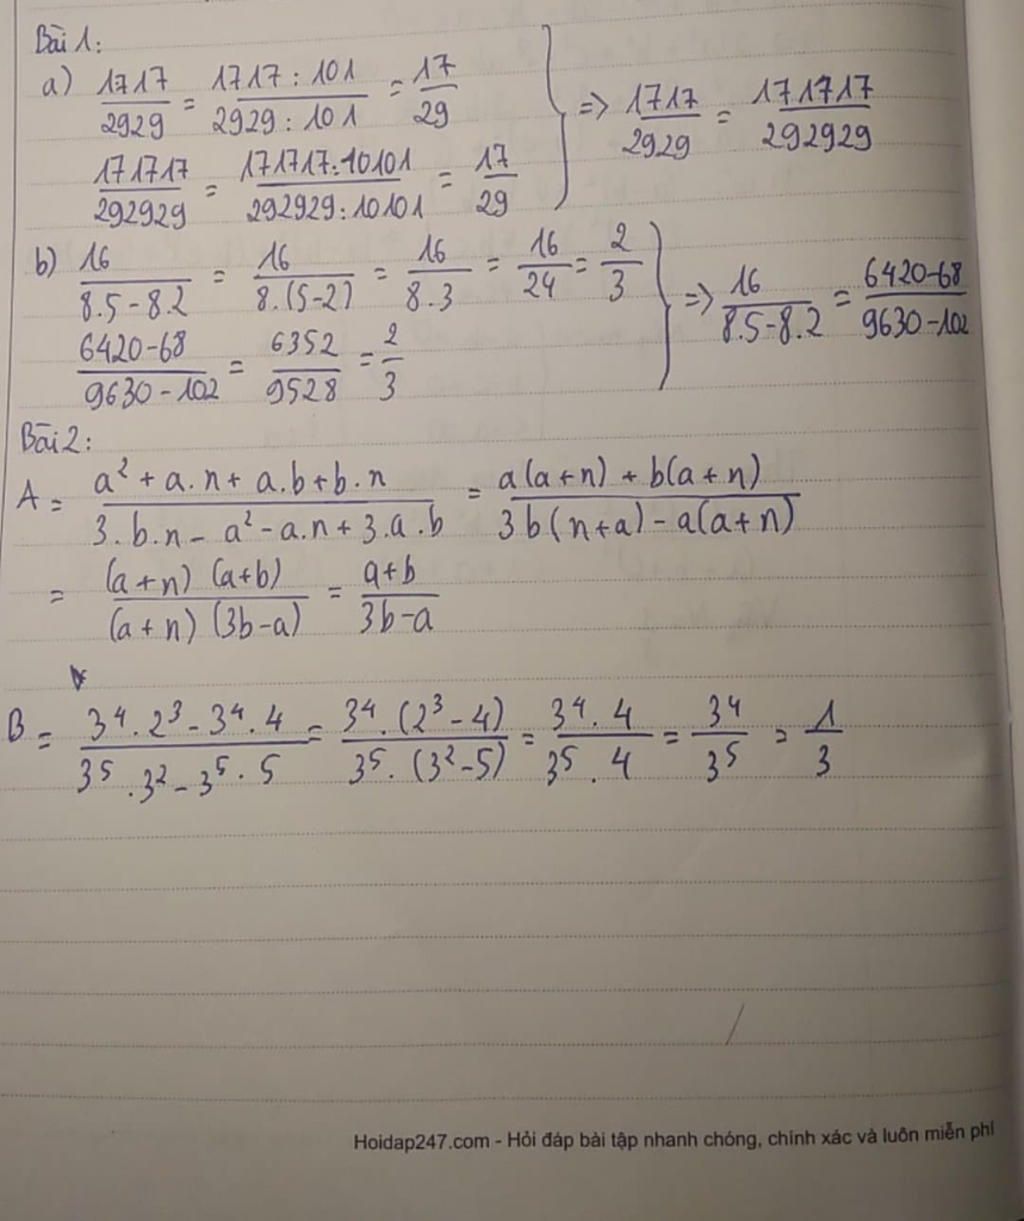 Bài 1:
a) 1717/2929 = 1717:101/2929:101 = 17/29 } => 1717/2929 = 171717/292929
171717/292929 = 171717:10101/292929:10101 = 17/29
b) 16/8.5-8.2 = 16/8.(5-2) = 16/8.3 = 16/24 = 2/3 } => 16/8.5-8.2 = 6420-68/9630-102
6420-68/9630-102 = 6352/9528 = 2/3
Bài 2:
A = a² + a.n + a.b + b.n/3.b.n - a² - a.n + 3.a.b = a(a+n) + b(a+n)/3b(n+a) - a(a+n)
= (a+n) (a+b)/(a+n) (3b-a) = a+b/3b-a
B = 3⁴.2³ - 3⁴.4/3⁵.3² - 3⁵.5 = 3⁴.(2³-4)/3⁵.(3²-5) = 3⁴.4/3⁵.4 = 3⁴/3⁵ = 1/3
Hoidap247.com - Hỏi đáp bài tập nhanh chóng, chính xác và luôn miễn phí